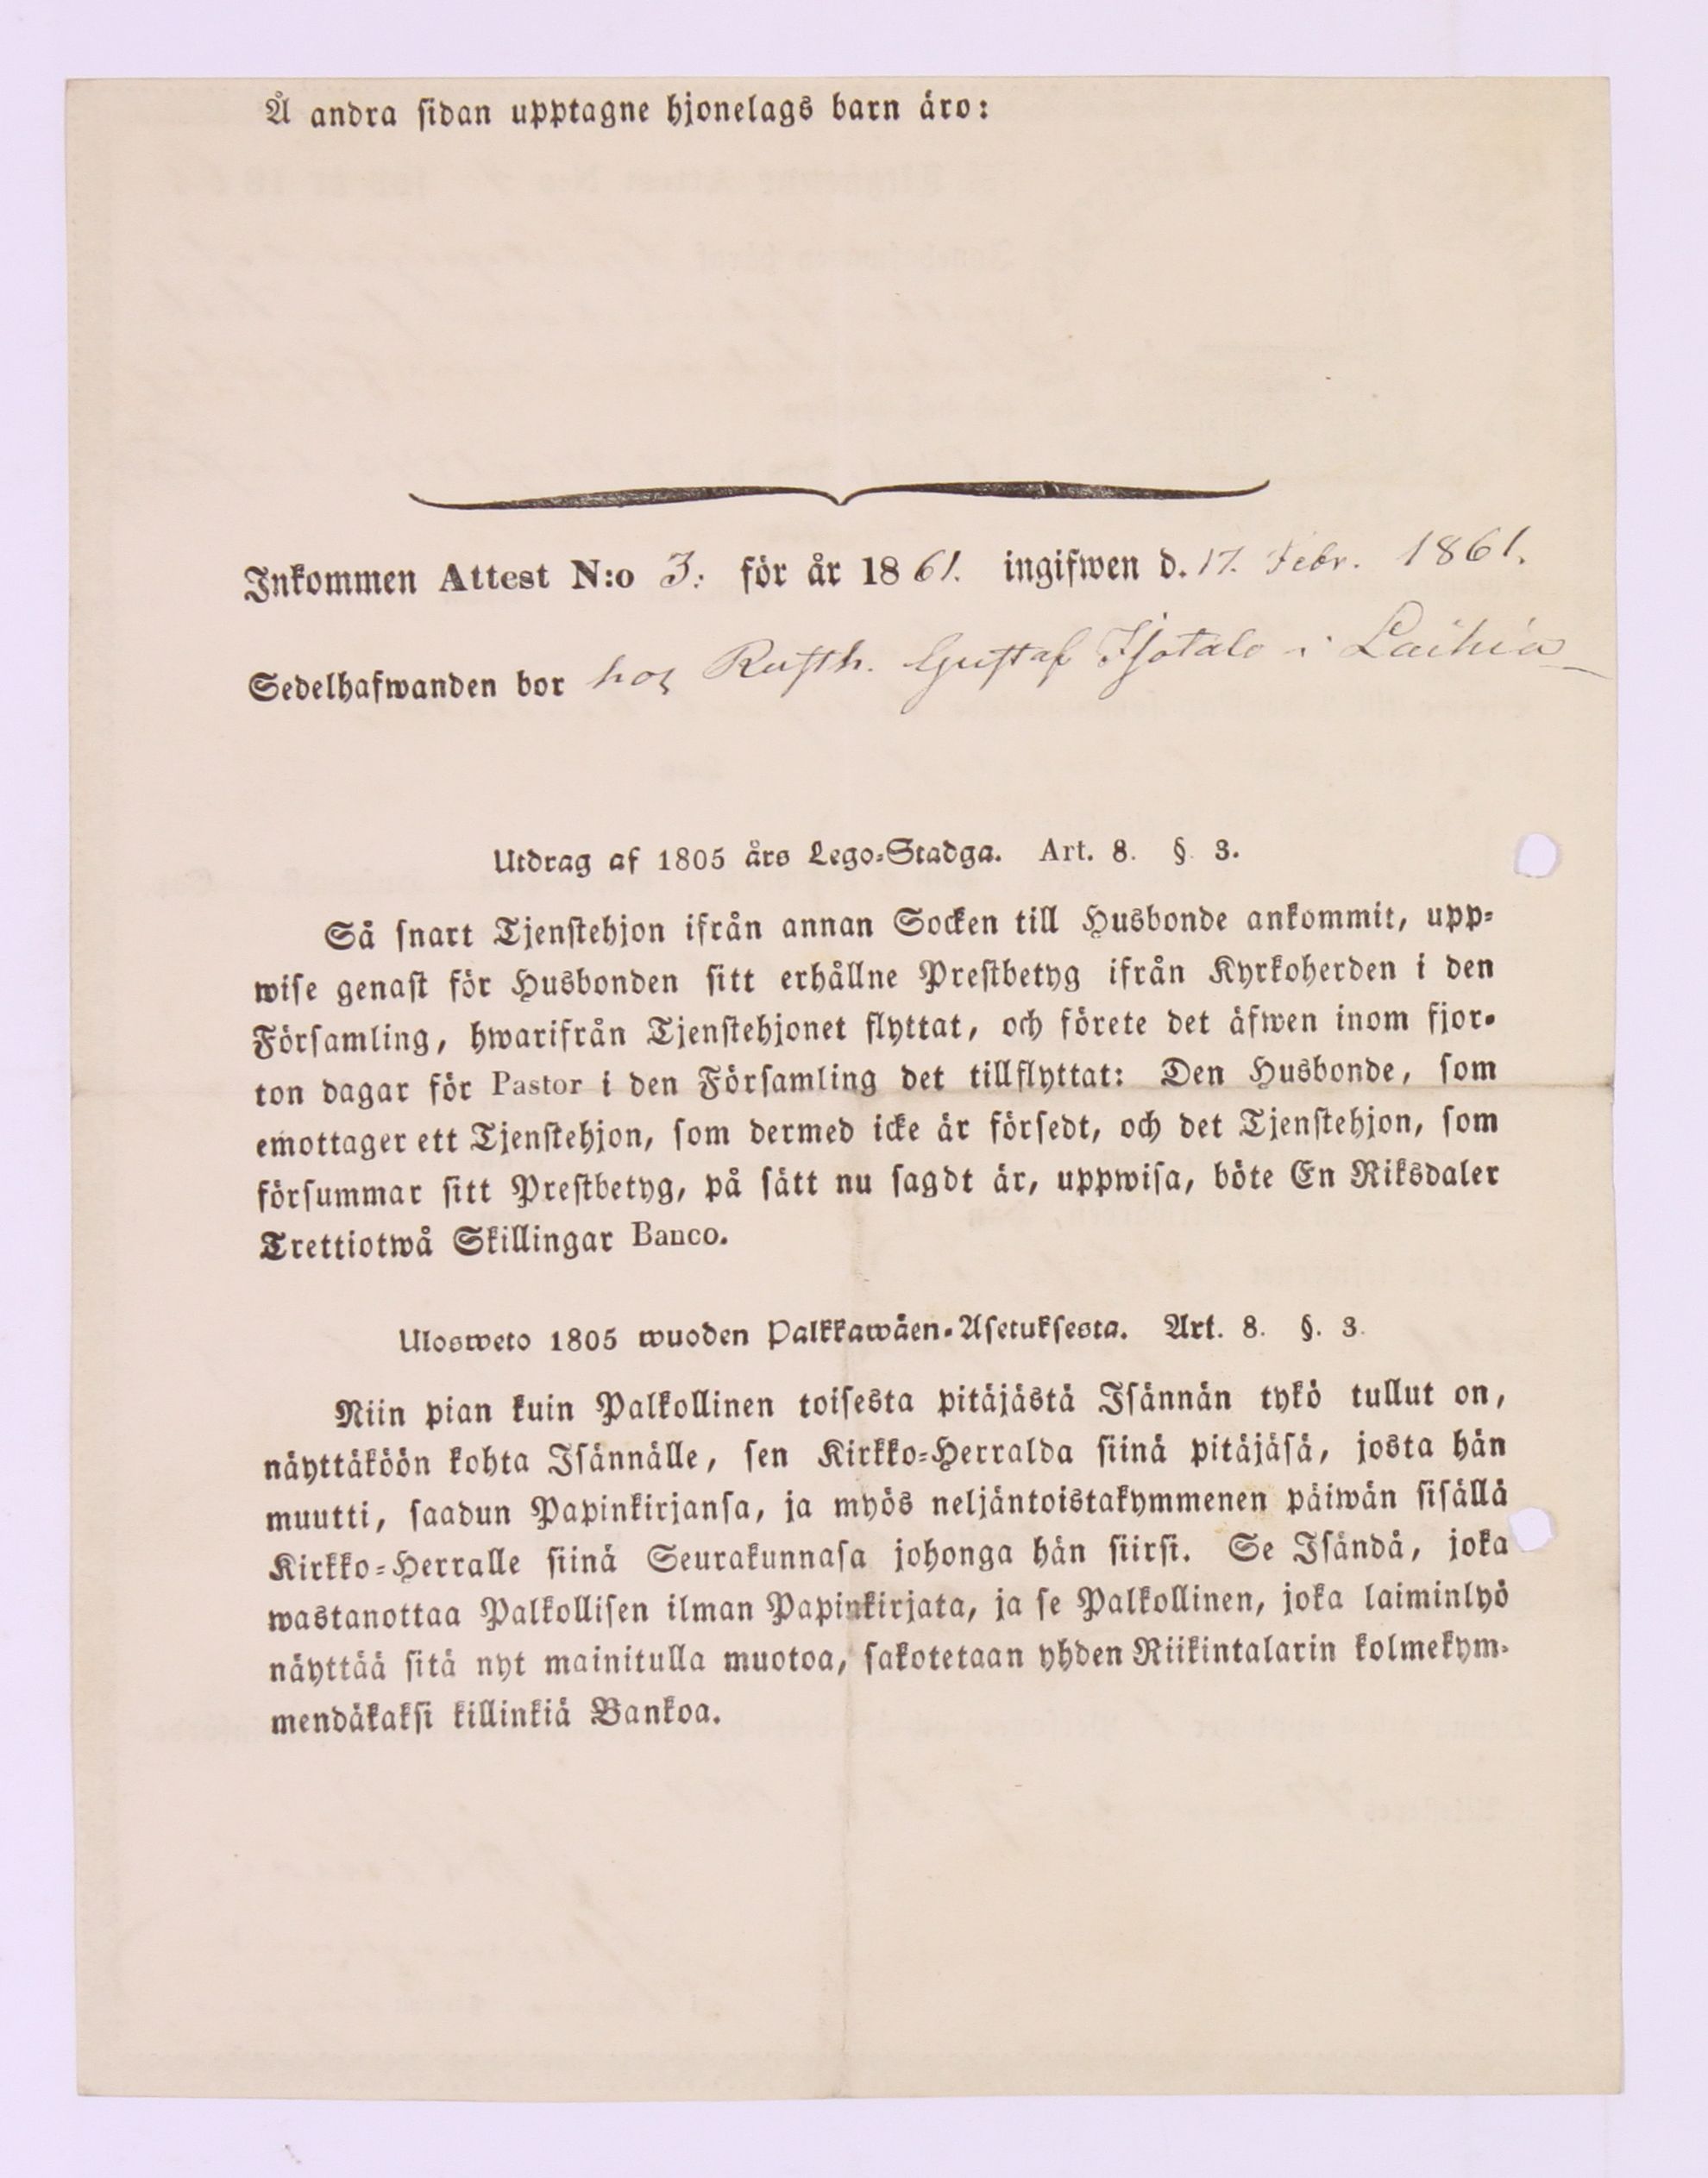 Å andra sidan upptagne hjonelags barn äro:
Inkommen Attest N:o 3: för år 1861. ingifwen d. 17. Febr. 1861.
Sedelhafwanden bor hos Rusth. Gustaf Isotalo i Laihia
Utdrag af 1805 års Lego-Stadga. Art. 8. §. 3.
Så snart Tjenstehjon ifrån annan Socken till Husbonde ankommit, upp-
wise genast för Husbonden sitt erhållne Prestbetyg ifrån Kyrkoherden i den
Församling, hwarifrån Tjenstehjonet flyttat, och förete det äfwen inom fjor-
ton dagar för Pastor i den Församling det tillflyttat: Den Husbonde, som
emottager ett Tjenstehjon, som dermed icke är försedt, och det Tjenstehjon, som
försummar sitt Prestbetyg, på sätt nu sagdt är, uppwisa, böte En Riksdaler
Trettiotwå Skillingar Banco.
Ulosweto 1805 wuoden Palkkawäen-Asetuksesta. Art. 8. §. 3.
Niin pian kuin Palkollinen toisesta pitäjästä Isännän tykö tullut on,
näyttäköön kohta Isännälle, sen Kirkko-Herralda siinä pitäjäsä, josta hän
muutti, saadun Papinkirjansa, ja myös neljäntoistakymmenen päiwän sisällä
Kirkko-Herralle siinä Seurakunnasa johonga hän siirsi. Se Isändä, joka
wastanottaa Palkollisen ilman Papinkirjata, ja se Palkollinen, joka laiminlyö
näyttää sitä nyt mainitulla muotoa, sakotetaan yhden Riikintalarin kolmekym-
mendäkaksi killinkiä Bankoa.